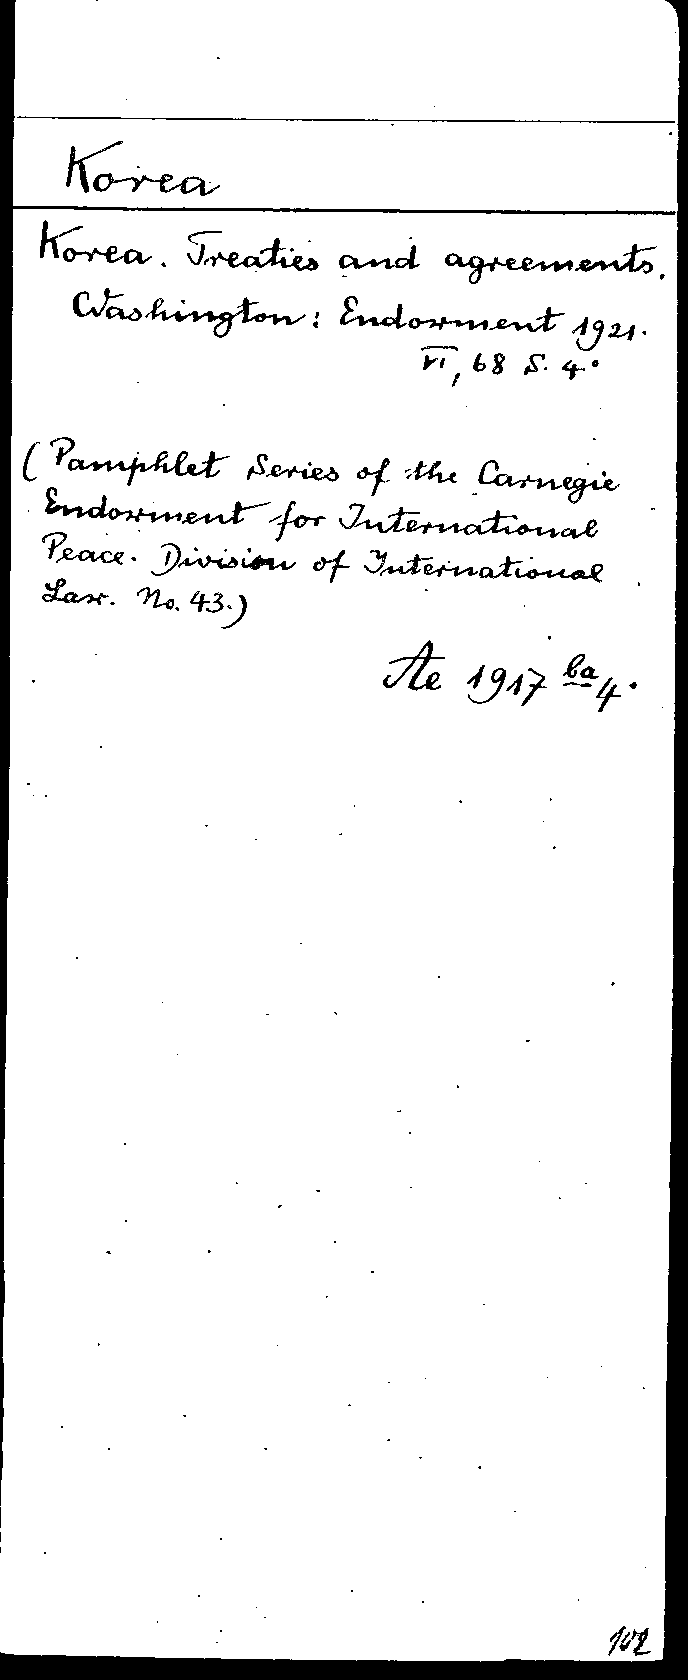 Korea
Korea. Treaties and agreements.
Washington: Endowment 1921.
VI, 68 S. 4°
(Pamphlet Series of the Carnegie
Endowment for International
Peace. Division of International
Law. No. 43.)
Ae 1917 ba 4°
102